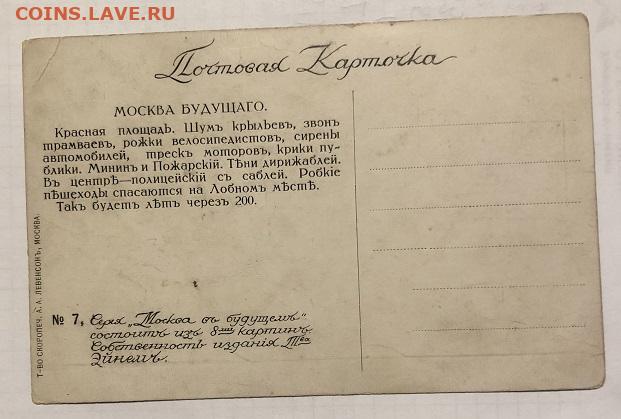 COINS.LAVE.RU
Почтовая Карточка
МОСКВА БУДУЩАГО.
Красная площадь. Шумъ крыльевъ, звонъ
трамваевъ, рожки велосипедистовъ, сирены
автомобилей, трескъ моторовъ, крики пу-
блики. Мининъ и Пожарскій. Тѣни дирижаблей.
Въ центрѣ—полицейскій съ саблей. Робкіе
пѣшеходы спасаются на Лобномъ мѣстѣ.
Такъ будетъ лѣтъ черезъ 200.
№ 7, Серія „Москва въ будущемъ“
состоитъ изъ 8ми картинъ.
Собственность изданія Тва
Эйнемъ.
Т-ВО СКОРОПЕЧ. А. А. ЛЕВЕНСОНЪ, МОСКВА.